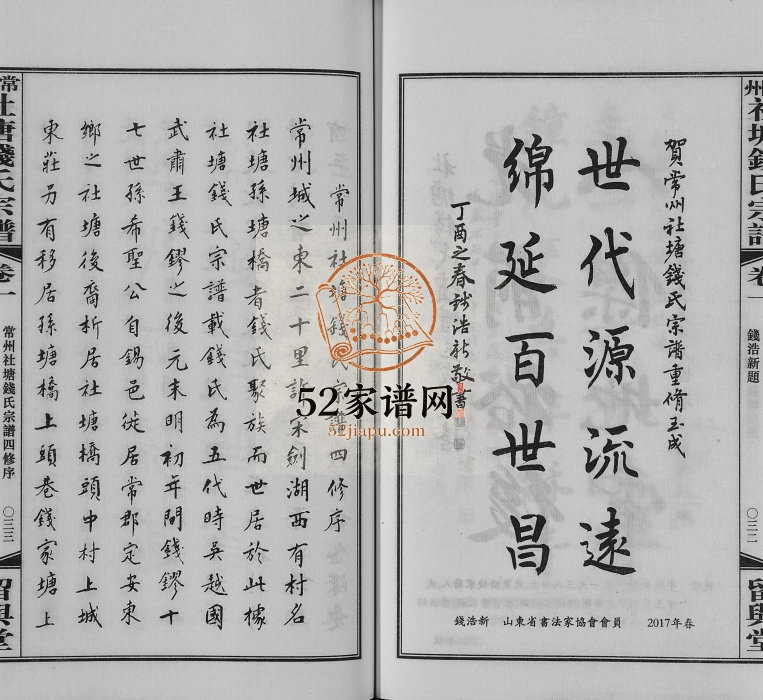 州社塘錢氏宗譜
卷一
錢浩新題
〇三二
留興堂
賀常州社塘錢氏宗譜重脩玉成
世代源流遠
綿延百世昌
丁酉之春錢浩新敬書
錢浩新 山東省書法家協會會員 2017年春
常州社塘錢氏宗譜四修序
常州城之東二十里許宋劍湖西有村名
社塘孫塘橋者錢氏聚族而世居於此據
社塘錢氏宗譜載錢氏為五代時吳越國
武肅王錢鏐之後元末明初年間錢鏐十
七世孫希聖公自錫邑徙居常郡定安東
鄉之社塘後裔析居社塘橋頭中村上城
東莊另有移居孫塘橋上頭巷錢家塘上
常
社塘錢氏宗譜
卷一
常州社塘錢氏宗譜四修序
〇三三
留興堂
52家谱网
52jiapu.com